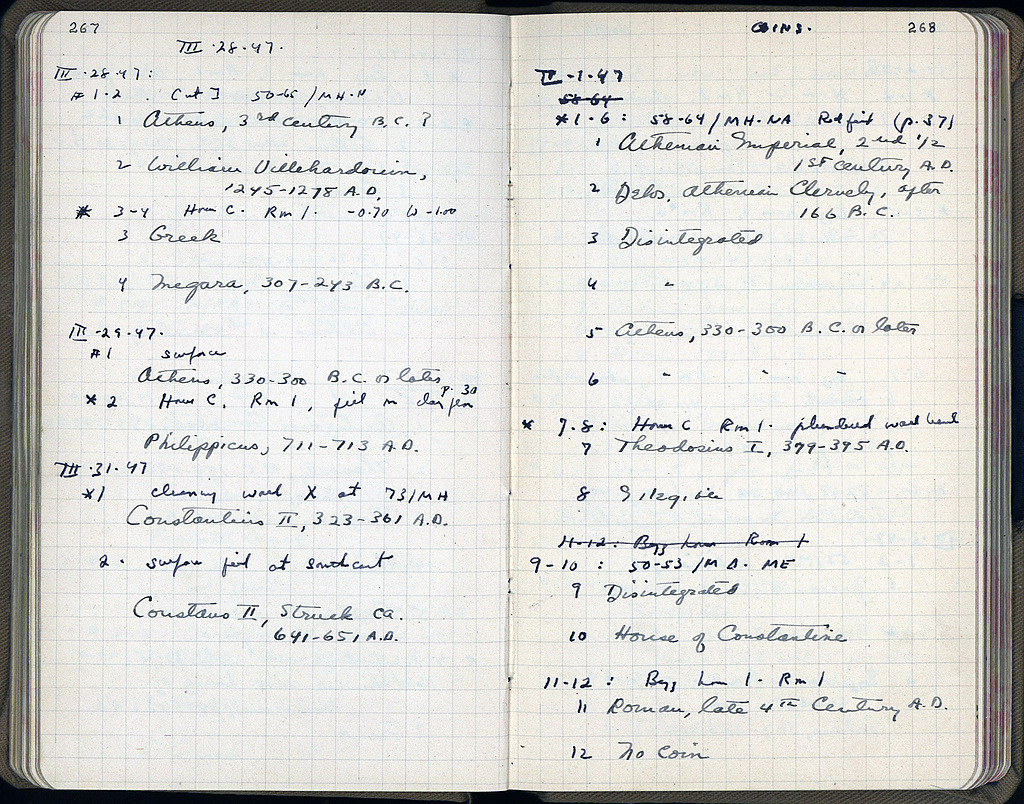 267
III · 28 · 47 ·
III · 28 · 47 :
# 1-2 . Cut I 50-65 / MH-
1 Athens, 3rd century B.C. ?
2 William Villehardouin,
1245-1278 A.D.
# 3-4 House C. Rm 1. -0.70 W -1.00
3 Greek
4 Megara, 307-243 B.C.
III · 29 · 47 ·
#1 surface
Athens, 330-300 B.C. or later
p. 30
* 2 House C, Rm 1,
Philippicus, 711-713 A.D.
III · 31 · 47
*1 cleaning X at 73/MH
Constantius II, 323-361 A.D.
2 · surface at southeast
Constans II, Struck ca.
641-651 A.D.
COINS.
268
IV - 1 · 47
58-64
*1-6 : 58-64/MH-NA Red fill (p. 37)
1 Athenian Imperial, 2nd 1/2
1st century A.D.
2 Delos, Athenian Cleruchy, after
166 B.C.
3 Disintegrated
4 "
5 Athens, 330-300 B.C. or later
6 " " "
* 7-8 : House C Rm 1. plundered
7 Theodosius I, 379-395 A.D.
8 Illegible
11-12 : Byz house Room 1
9-10 : 50-53 / M D - ME
9 Disintegrated
10 House of Constantine
11-12 : Byz house 1. Rm 1
11 Roman, late 4th Century A.D.
12 No coin